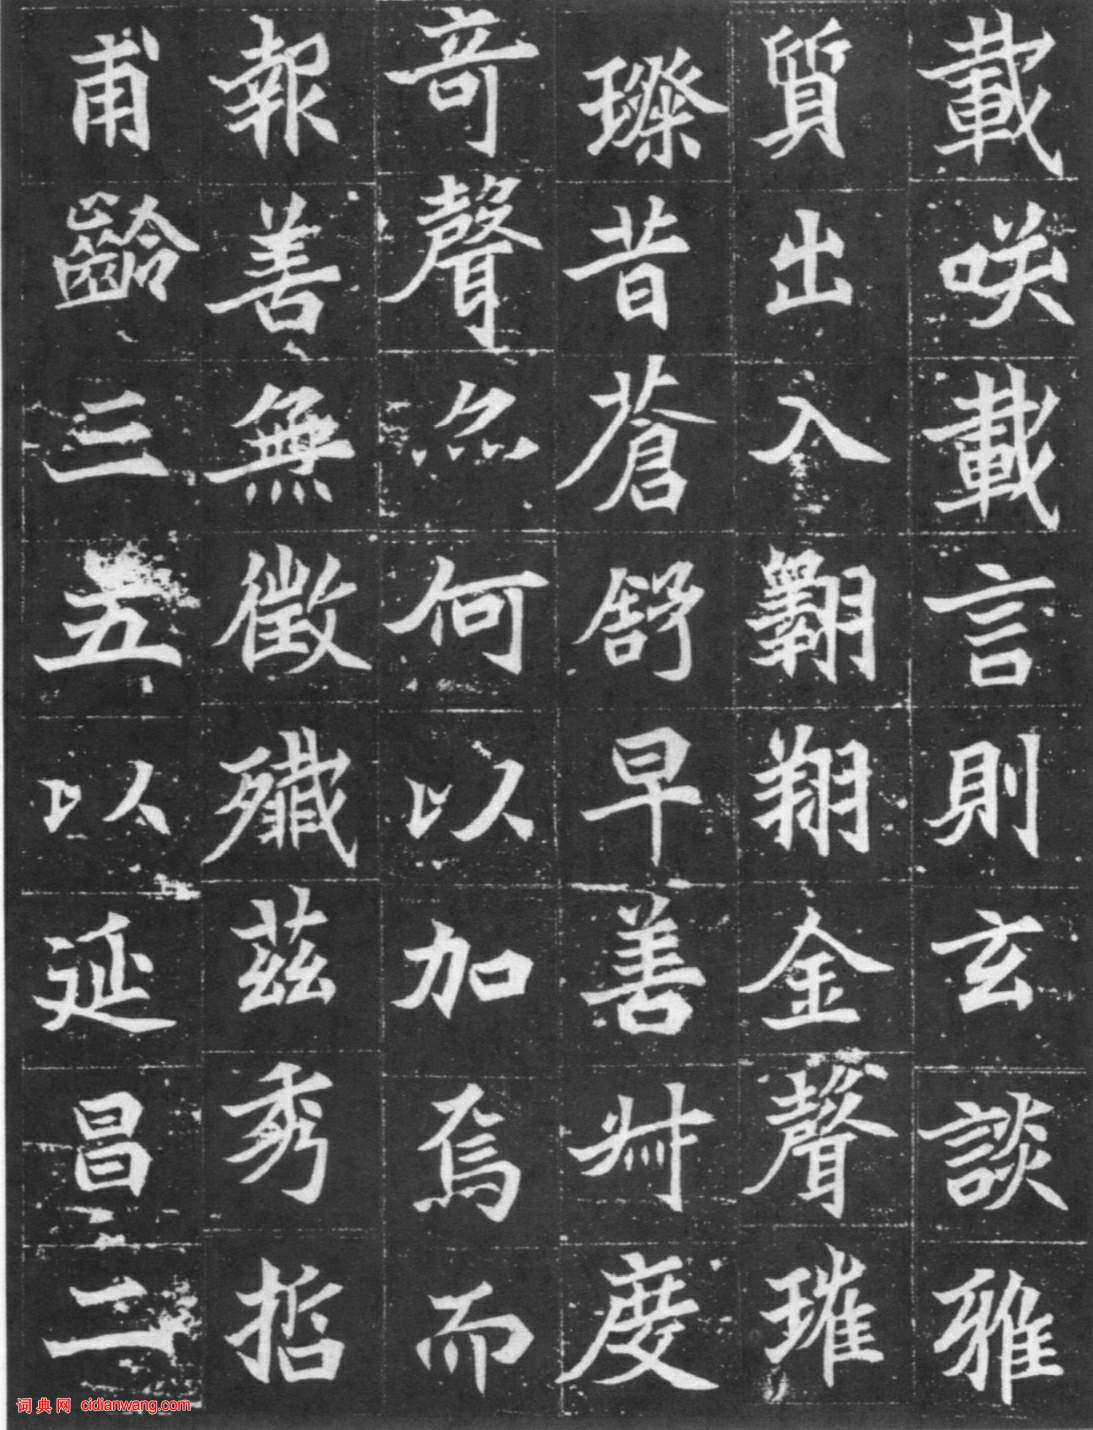 載咲載言則玄談雅
質出入翺翔金聲璀
璨昔蒼舒早善叔度
竒聲亦何以加焉而
報善無徵殲茲秀哲
甫齡三五以延昌二
词典网 cidianwang.com